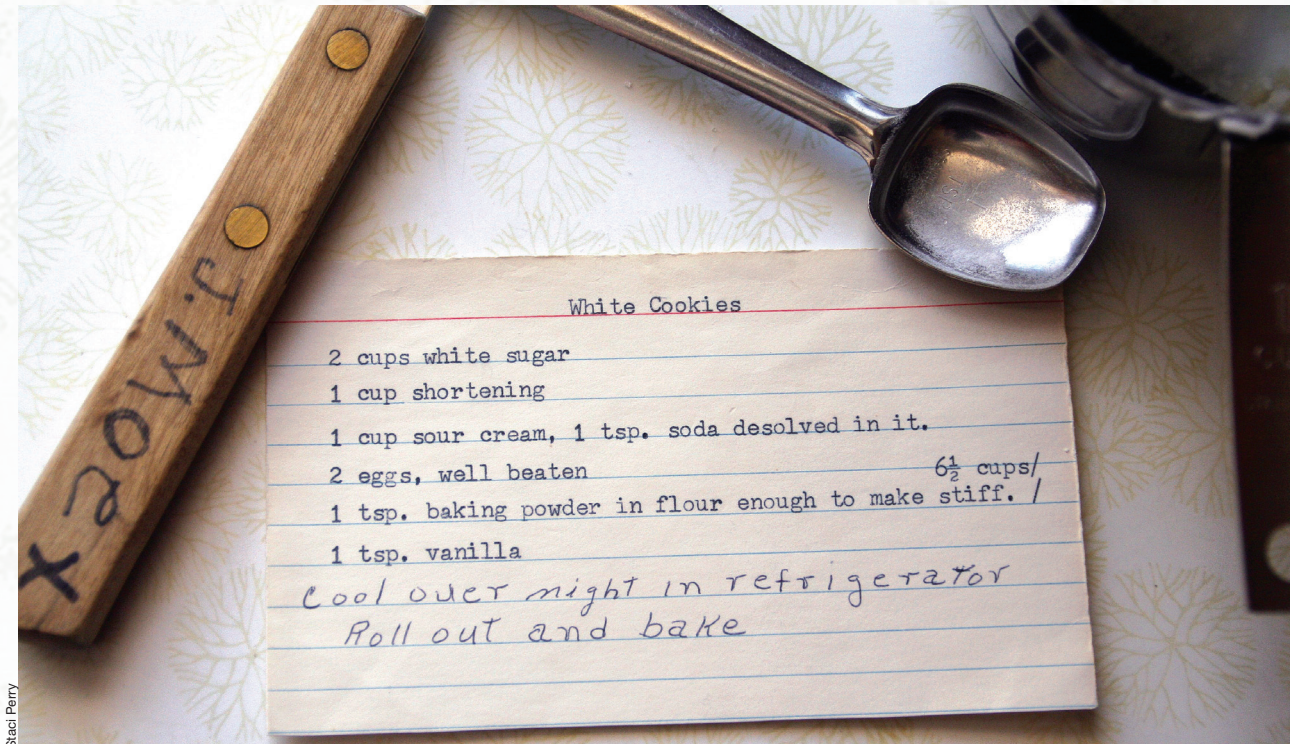 J. Moer
X
White Cookies
2 cups white sugar
1 cup shortening
1 cup sour cream, 1 tsp. soda desolved in it.
2 eggs, well beaten
6½ cups/
1 tsp. baking powder in flour enough to make stiff. /
1 tsp. vanilla
Cool over night in refrigerator
Roll out and bake
Staci Perry